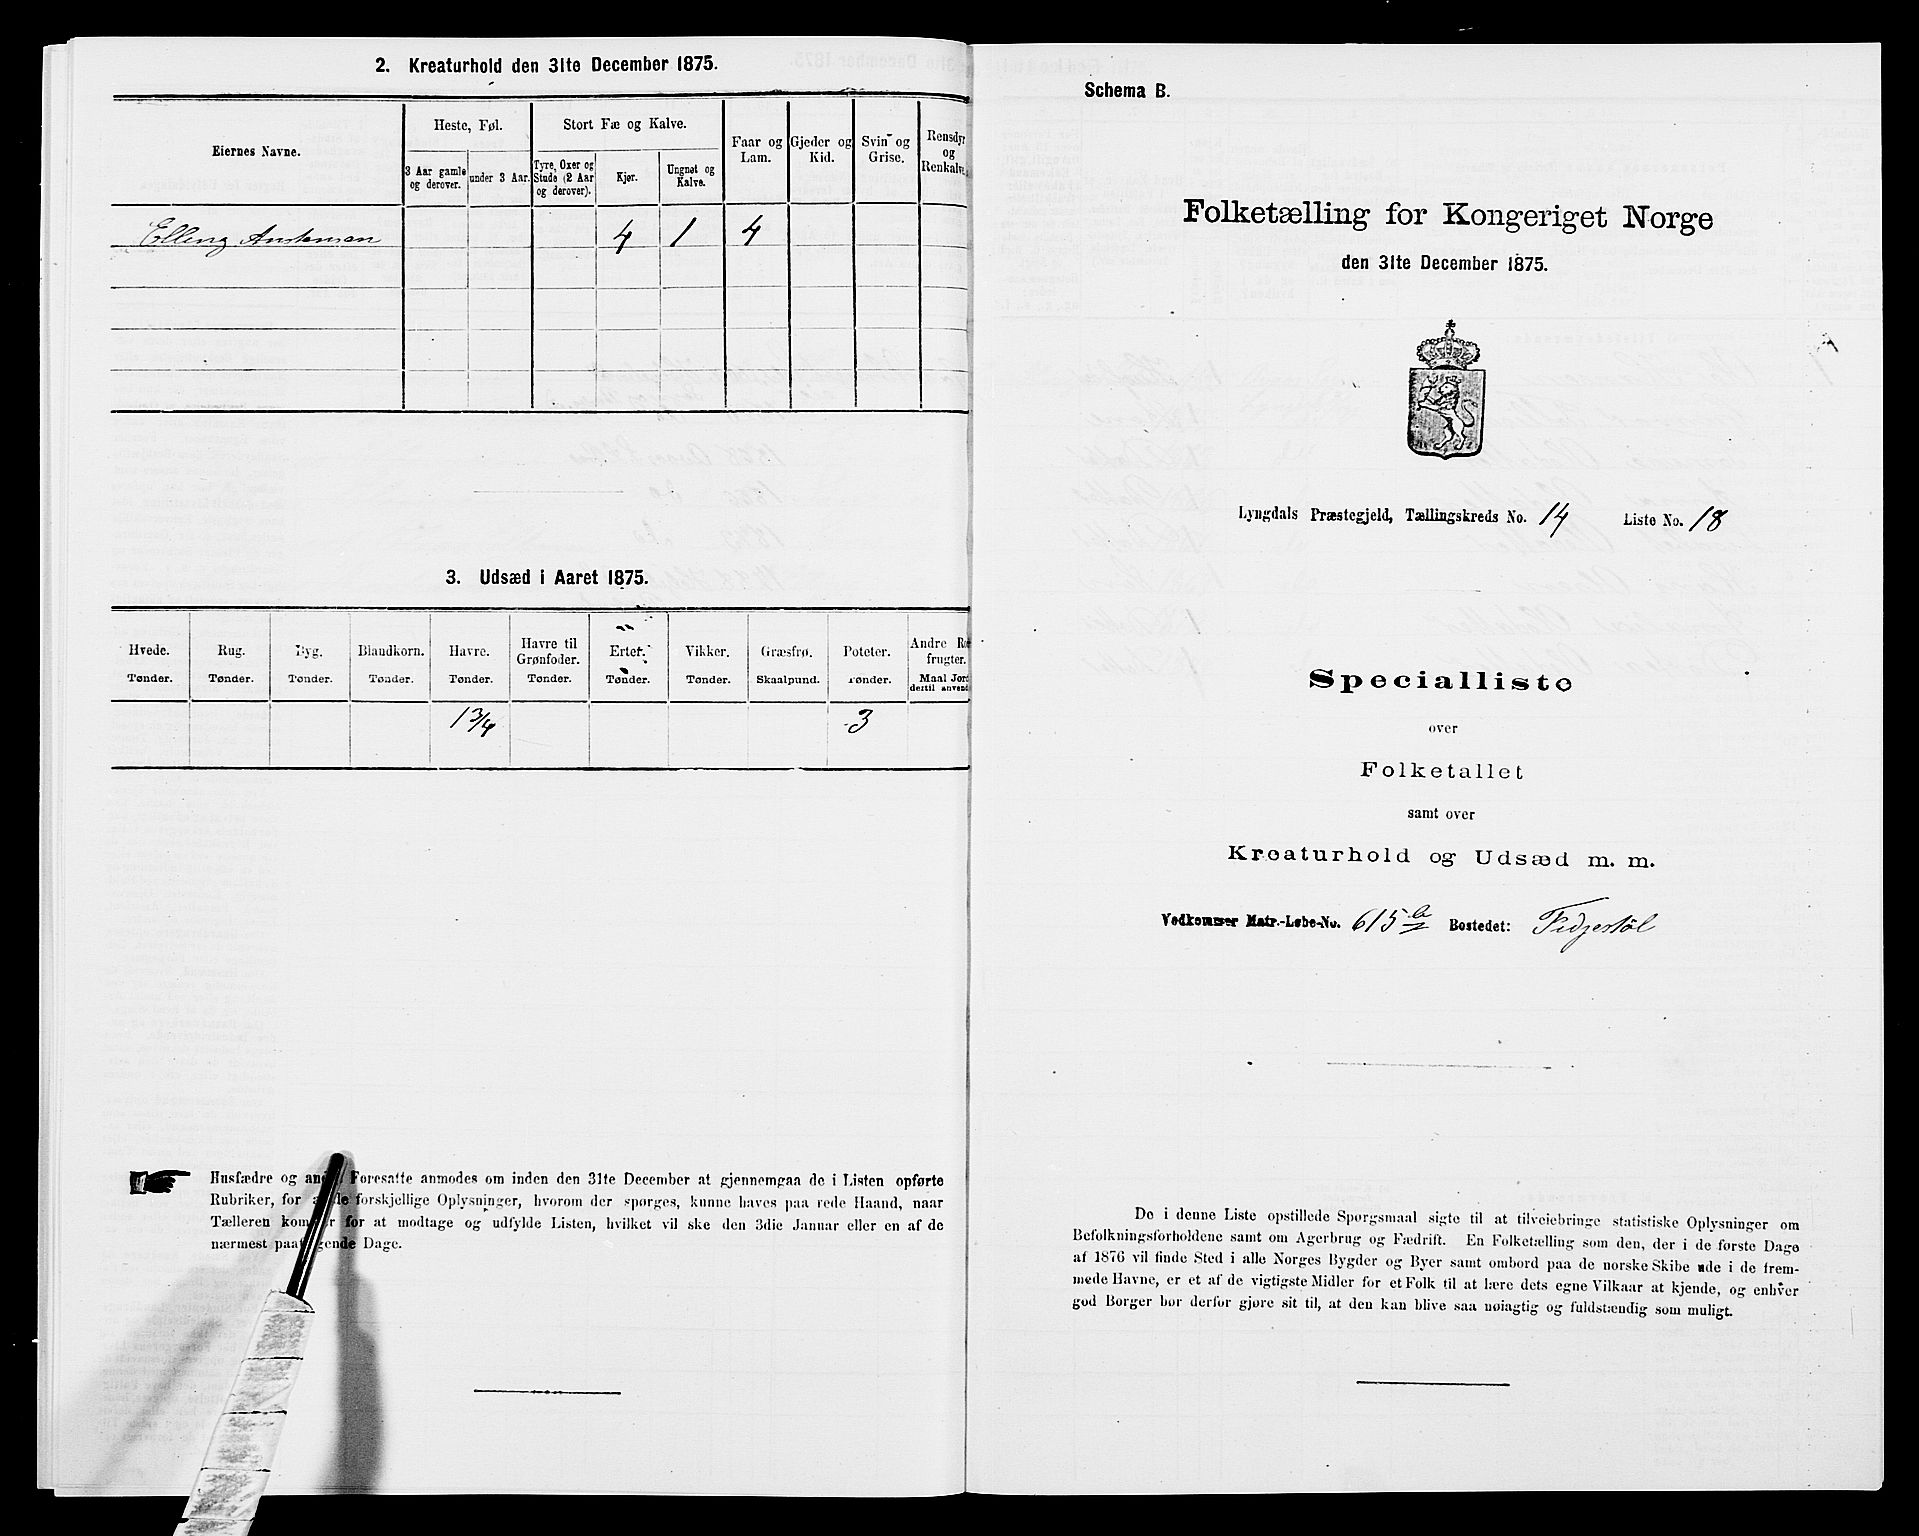 2. Kreaturhold den 31te December 1875.
Eiernes Navne.
Heste, Føl.
Stort Fæ og Kalve.
3 Aar gamle og derover.
under 3 Aar.
Tyre, Oxer og Stude (2 Aar og derover).
Kjør.
Ungnøt og Kalve.
Faar og Lam.
Gjeder og Kid.
Svin og Grise.
Rensdyr og Renkalve.
Elling 4 1 4
3. Udsæd i Aaret 1875.
Hvede. Tønder.
Rug. Tønder.
Byg. Tønder.
Blandkorn. Tønder.
Havre. Tønder.
Havre til Grønfoder. Tønder.
Erter. Tønder.
Vikker. Tønder.
Græsfrø. Skaalpund.
Poteter. Tønder.
Andre frugter. Maal Jord dertil
1 3/4 3
Husfædre og Foresatte anmodes om inden den 31te December at gjennemgaa de i Listen opførte
Rubriker, for forskjellige Oplysninger, hvorom der spørges, kunne haves paa rede Haand, naar
Tælleren for at modtage og udfylde Listen, hvilket vil ske den 3die Januar eller en af de
nærmest Dage.
Schema B.
Folketælling for Kongeriget Norge
den 31te December 1875.
Lyngdals Præstegjeld, Tællingskreds No. 14 Liste No. 18
Specialliste
over
Folketallet
samt over
Kreaturhold og Udsæd m. m.
Vedkommer Matr.-Løbe-No. 615 b Bostedet: Fidjestøl
De i denne Liste opstillede Spørgsmaal sigte til at tilveiebringe statistiske Oplysninger om
Befolkningsforholdene samt om Agerbrug og Fædrift. En Folketælling som den, der i de første Dage
af 1876 vil finde Sted i alle Norges Bygder og Byer samt ombord paa de norske Skibe ude i de frem-
mede Havne, er et af de vigtigste Midler for et Folk til at lære dets egne Vilkaar at kjende, og enhver
god Borger bør derfor gjøre sit til, at den kan blive saa nøiagtig og fuldstændig som muligt.